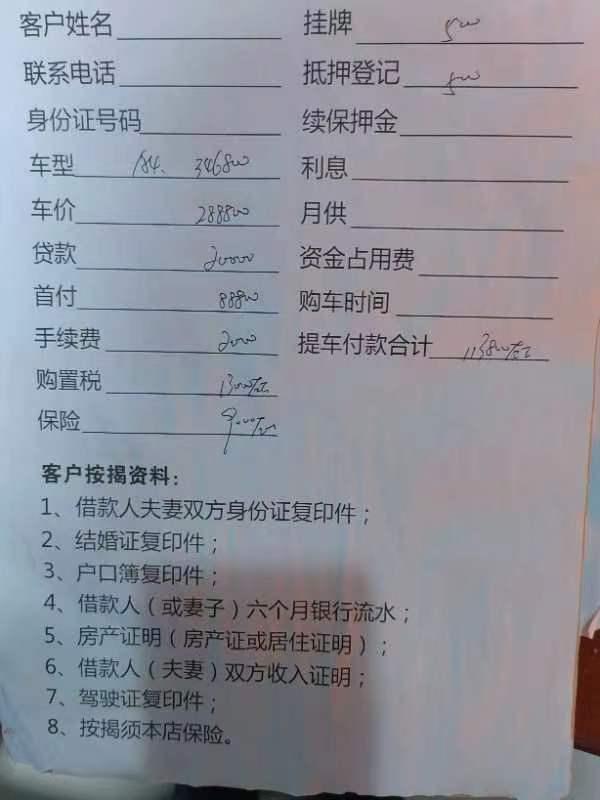 客户姓名 挂牌 500
联系电话 抵押登记 500
身份证号码 续保押金
车型 184、 346800 利息
车价 288800 月供
贷款 20000 资金占用费
首付 88800 购车时间
手续费 2000 提车付款合计 113800左右
购置税 13000左右
保险 9000左右
客户按揭资料：
1、借款人夫妻双方身份证复印件；
2、结婚证复印件；
3、户口簿复印件；
4、借款人（或妻子）六个月银行流水；
5、房产证明（房产证或居住证明）；
6、借款人（夫妻）双方收入证明；
7、驾驶证复印件；
8、按揭须本店保险。